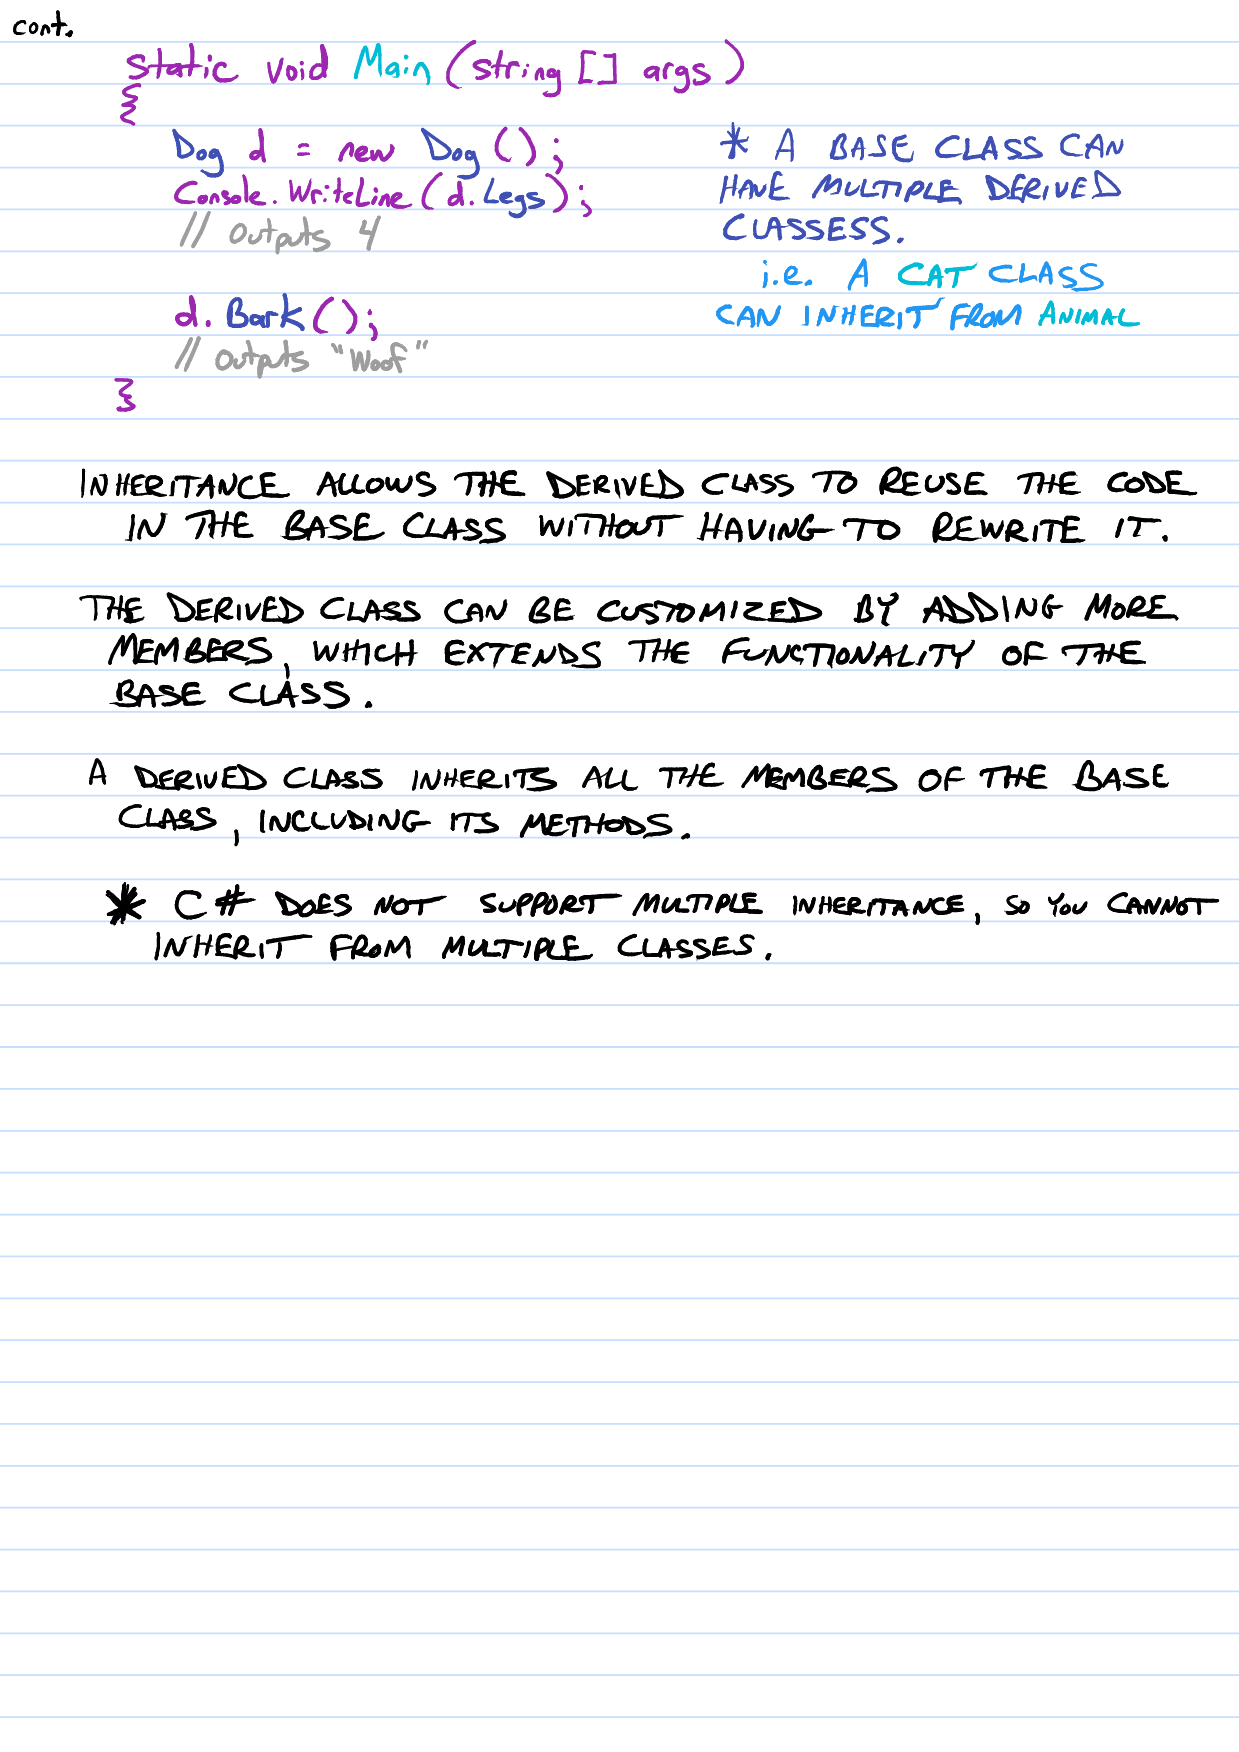 cont.
static void Main (string [] args)
{
Dog d = new Dog ();
Console.WriteLine (d.Legs);
// Outputs 4
d. Bark ();
// Outputs "Woof"
}
* A BASE CLASS CAN
HAVE MULTIPLE DERIVED
CLASSESS.
i.e. A CAT CLASS
CAN INHERIT FROM ANIMAL
INHERITANCE ALLOWS THE DERIVED CLASS TO REUSE THE CODE
IN THE BASE CLASS WITHOUT HAVING TO REWRITE IT.
THE DERIVED CLASS CAN BE CUSTOMIZED BY ADDING MORE
MEMBERS, WHICH EXTENDS THE FUNCTIONALITY OF THE
BASE CLASS.
A DERIVED CLASS INHERITS ALL THE MEMBERS OF THE BASE
CLASS, INCLUDING ITS METHODS.
* C# DOES NOT SUPPORT MULTIPLE INHERITANCE, SO YOU CANNOT
INHERIT FROM MULTIPLE CLASSES.